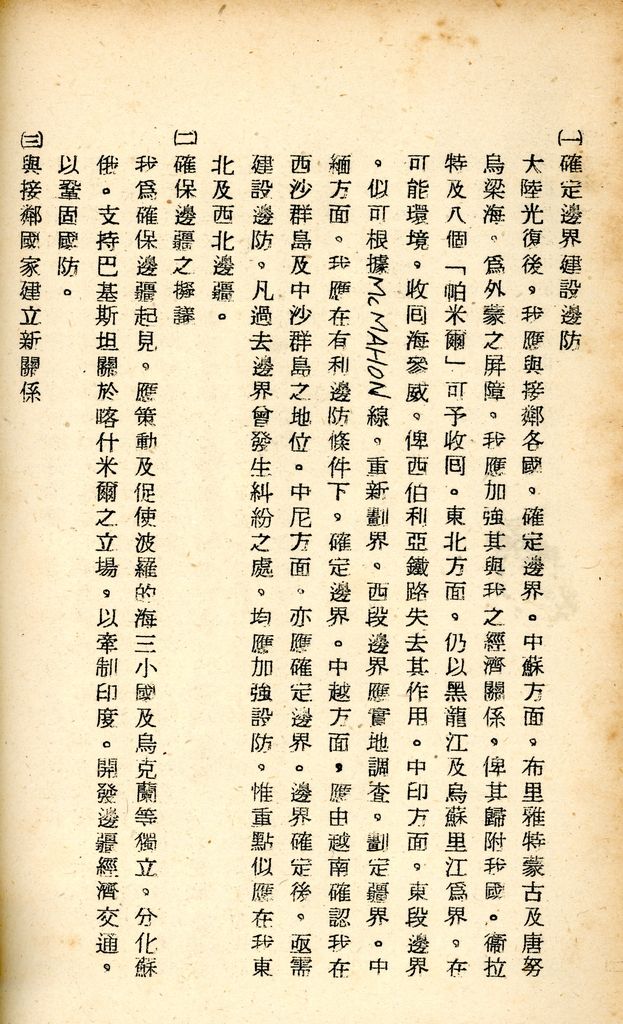 ㈠確定邊界建設邊防
大陸光復後，我應與接鄰各國，確定邊界。中蘇方面，布里雅特蒙古及唐努
烏梁海，爲外蒙之屏障，我應加強其與我之經濟關係，俾其歸附我國。衞拉
特及八個「帕米爾」可予收回。東北方面，仍以黑龍江及烏蘇里江爲界，在
可能環境，收回海參威，俾西伯利亞鐵路失去其作用。中印方面，東段邊界
，似可根據McMAHON線，重新劃界，西段邊界應實地調查，劃定疆界。中
緬方面，我應在有利邊防條件下，確定邊界。中越方面，應由越南確認我在
西沙群島及中沙群島之地位。中尼方面，亦應確定邊界。邊界確定後，亟需
建設邊防，凡過去邊界曾發生糾紛之處，均應加強設防，惟重點似應在我東
北及西北邊疆。
㈡確保邊疆之擬議
我爲確保邊疆起見，應策動及促使波羅的海三小國及烏克蘭等獨立，分化蘇
俄。支持巴基斯坦關於喀什米爾之立場，以牽制印度。開發邊疆經濟交通，
以鞏固國防。
㈢與接鄰國家建立新關係